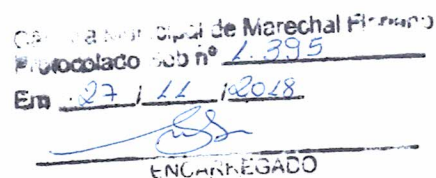 Câmara Municipal de Marechal Floriano
Protocolado sob nº 1.395
Em 27 / 11 / 2018
ENCARREGADO